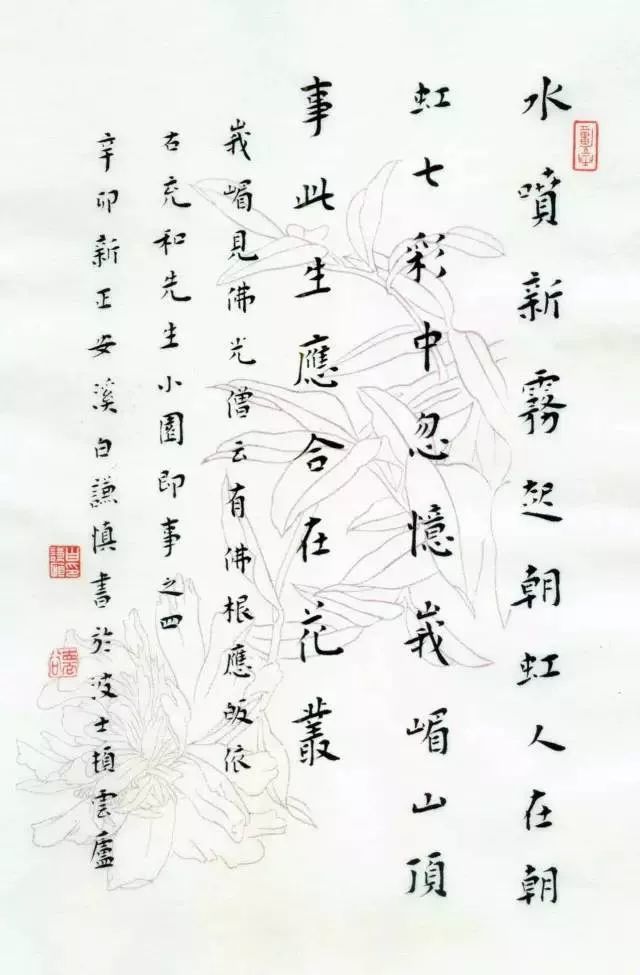 水噴新霧起朝虹人在朝
虹七彩中忽憶峩嵋山頂
事此生應合在花叢
峩嵋見佛光僧云有佛根應皈依
右充和先生小園即事之四
辛卯新正安溪白謙慎書於波士頓雲廬